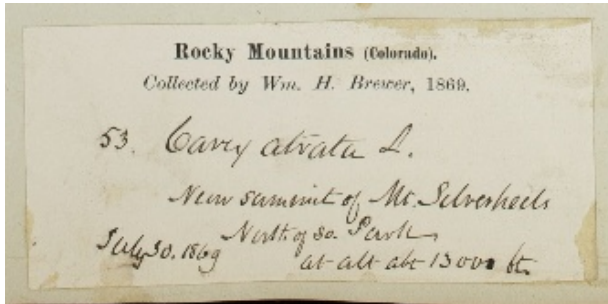 Rocky Mountains (Colorado).
Collected by Wm. H. Brewer, 1869.
53. Carex atrata L.
Near summit of Mt. Silverheels
North of So. Park
July 30. 1869 at alt abt 13000 ft.